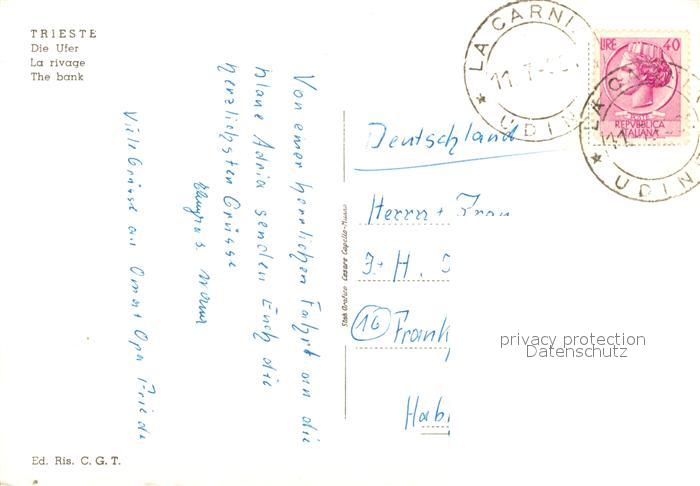 TRIESTE
Die Ufer
La rivage
The bank
Von einer herrlichen Fahrt an die
blaue Adria senden Euch die
herzlichsten Grüsse
Viele Grüsse an Oma + Opa Friede
Ed. Ris. C. G. T.
Stab Grafico Cesare Capello-Milano
LA CARNI
11.7
UDIN
LIRE 40
POSTE
REPVBBLICA
ITALIANA
LA CA
11.
UDIN
Deutschland
Herrn + Frau
J. + H.
(16) Frank
Hab
privacy protection
Datenschutz